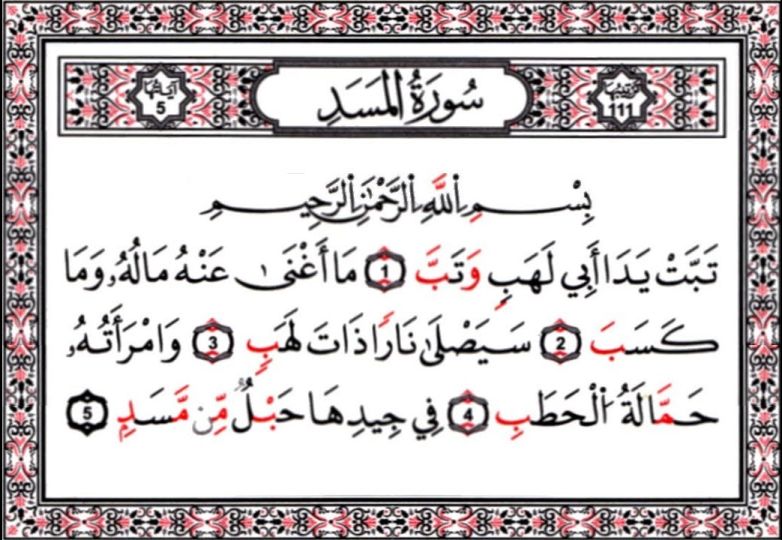 ترتيبها 111 سُورَةُ المَسَدِ آياتها 5
بِسْمِ اللَّهِ الرَّحْمَٰنِ الرَّحِيمِ
تَبَّتْ يَدَا أَبِي لَهَبٍ وَتَبَّ 1 مَا أَغْنَىٰ عَنْهُ مَالُهُۥ وَمَا
كَسَبَ 2 سَيَصْلَىٰ نَارًا ذَاتَ لَهَبٍ 3 وَامْرَأَتُهُۥ
حَمَّالَةُ ٱلْحَطَبِ 4 فِي جِيدِهَا حَبْلٌ مِّن مَّسَدٍ 5